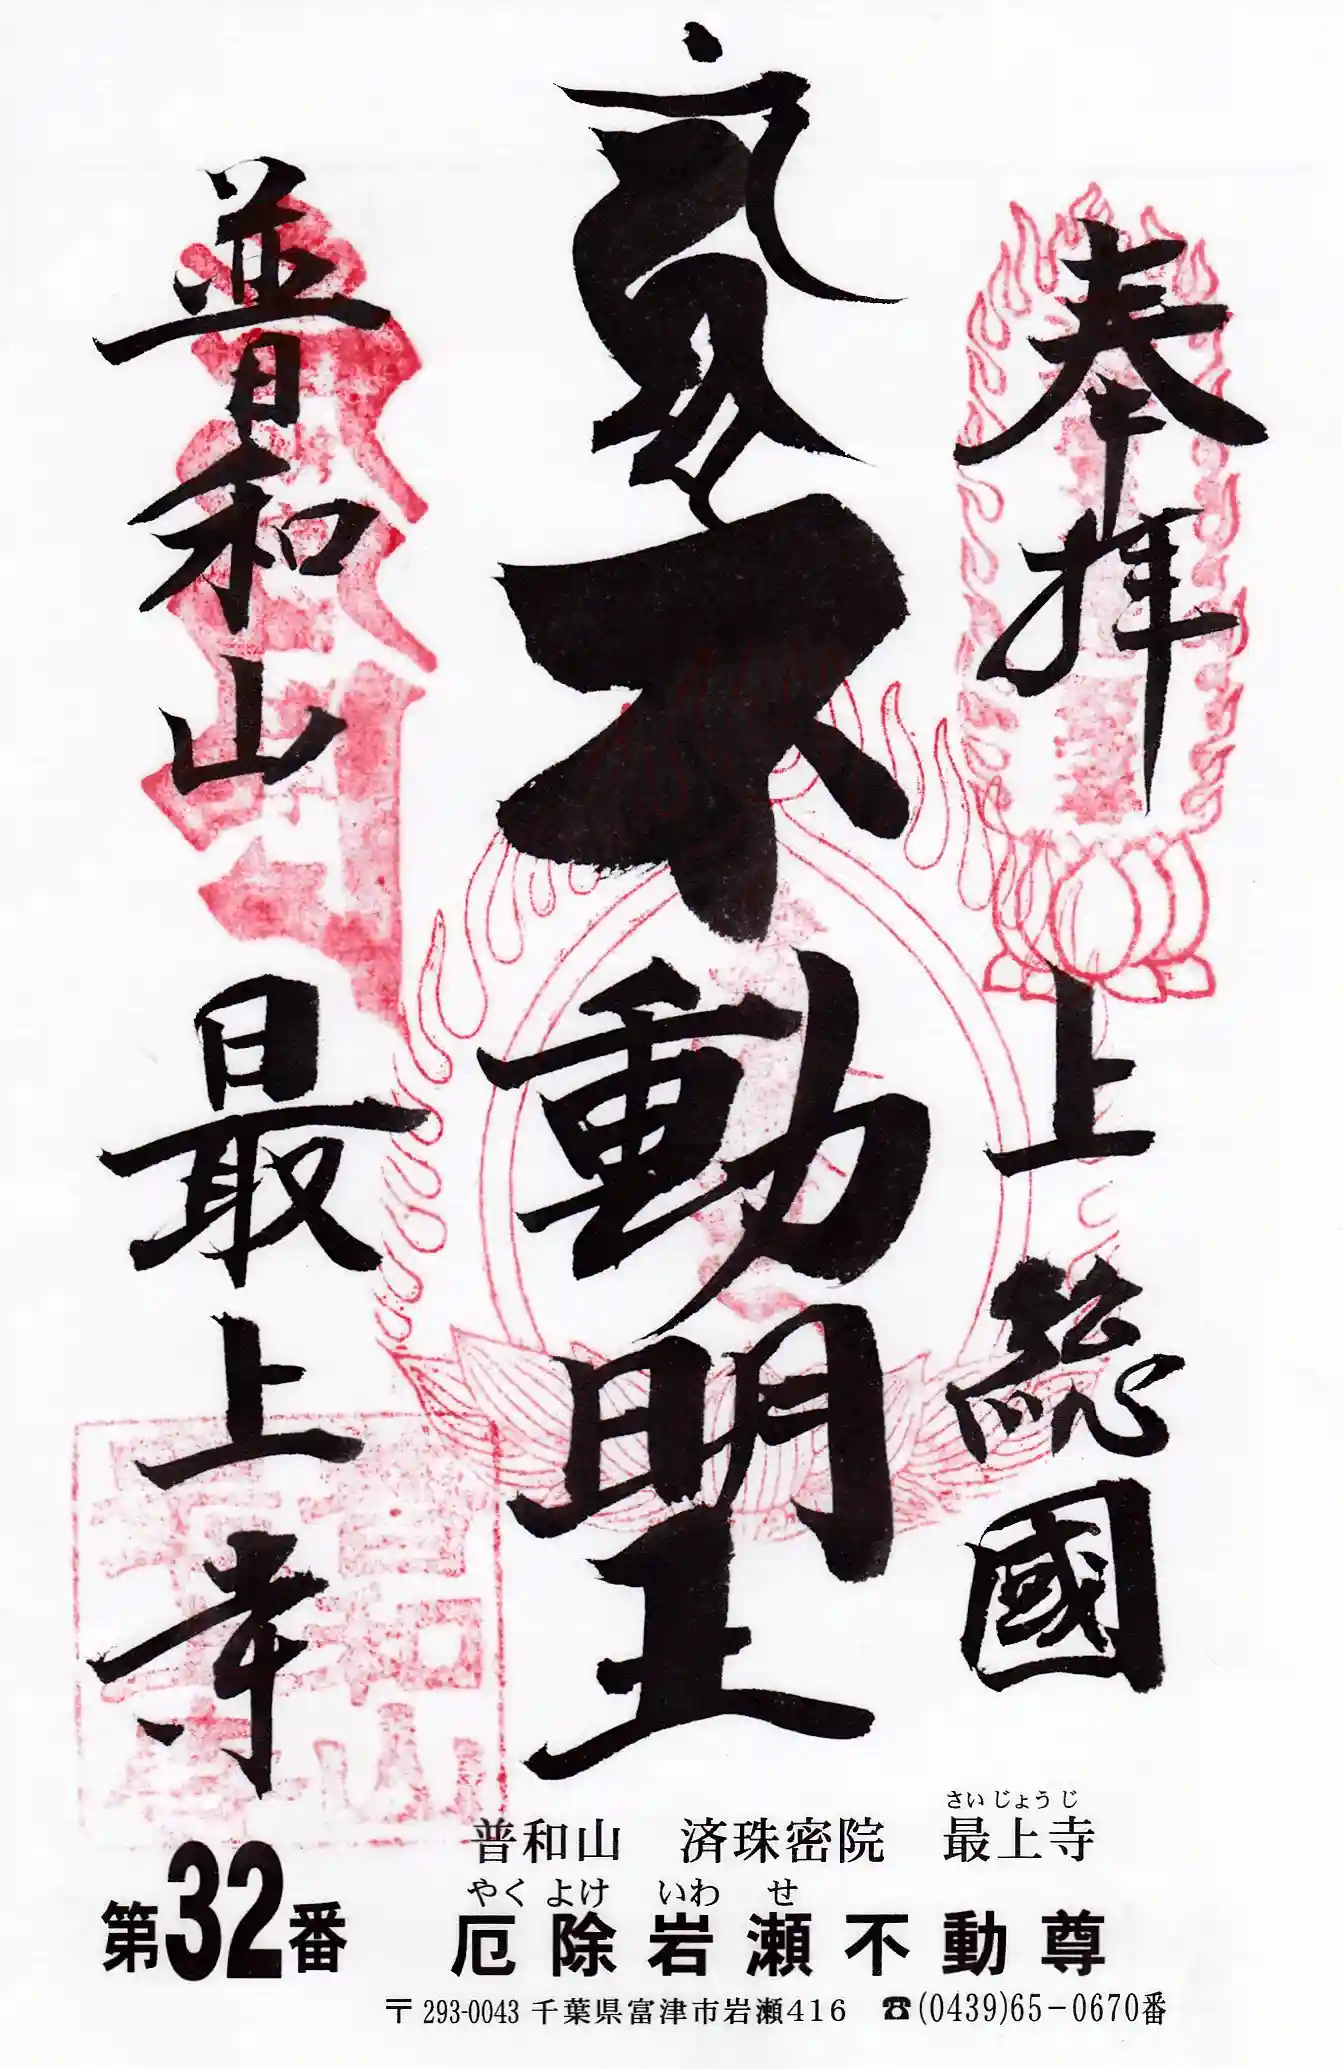 奉拝
上総國
不動明王
普和山
最上寺
さいじょうじ
普和山 済珠密院 最上寺
やくよけ いわ せ
厄除岩瀬不動尊
第32番
〒293-0043 千葉県富津市岩瀬416 ☎(0439)65-0670番